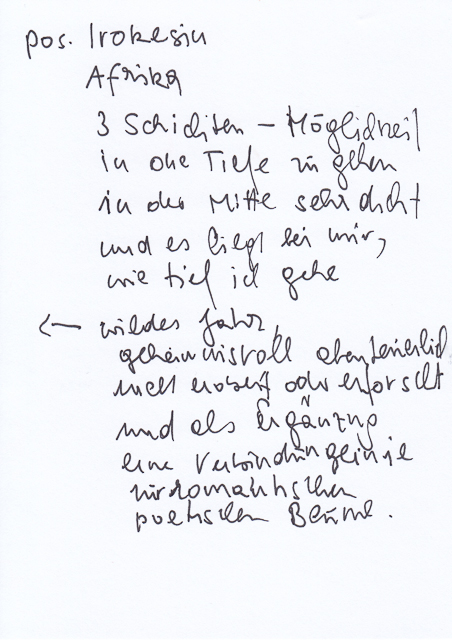 pos. Irokesin
Afrika
3 Schichten – Möglichkeit
in die Tiefe zu gehen
in der Mitte sehr dicht
und es liegt bei mir,
wie tief ich gehe
← wildes Jahr,
geheimnisvoll abenteuerlich
nicht erobert oder erforscht
und als Ergänzung
eine Verbindungslinie
zur romantischen
poetischen Bäume.